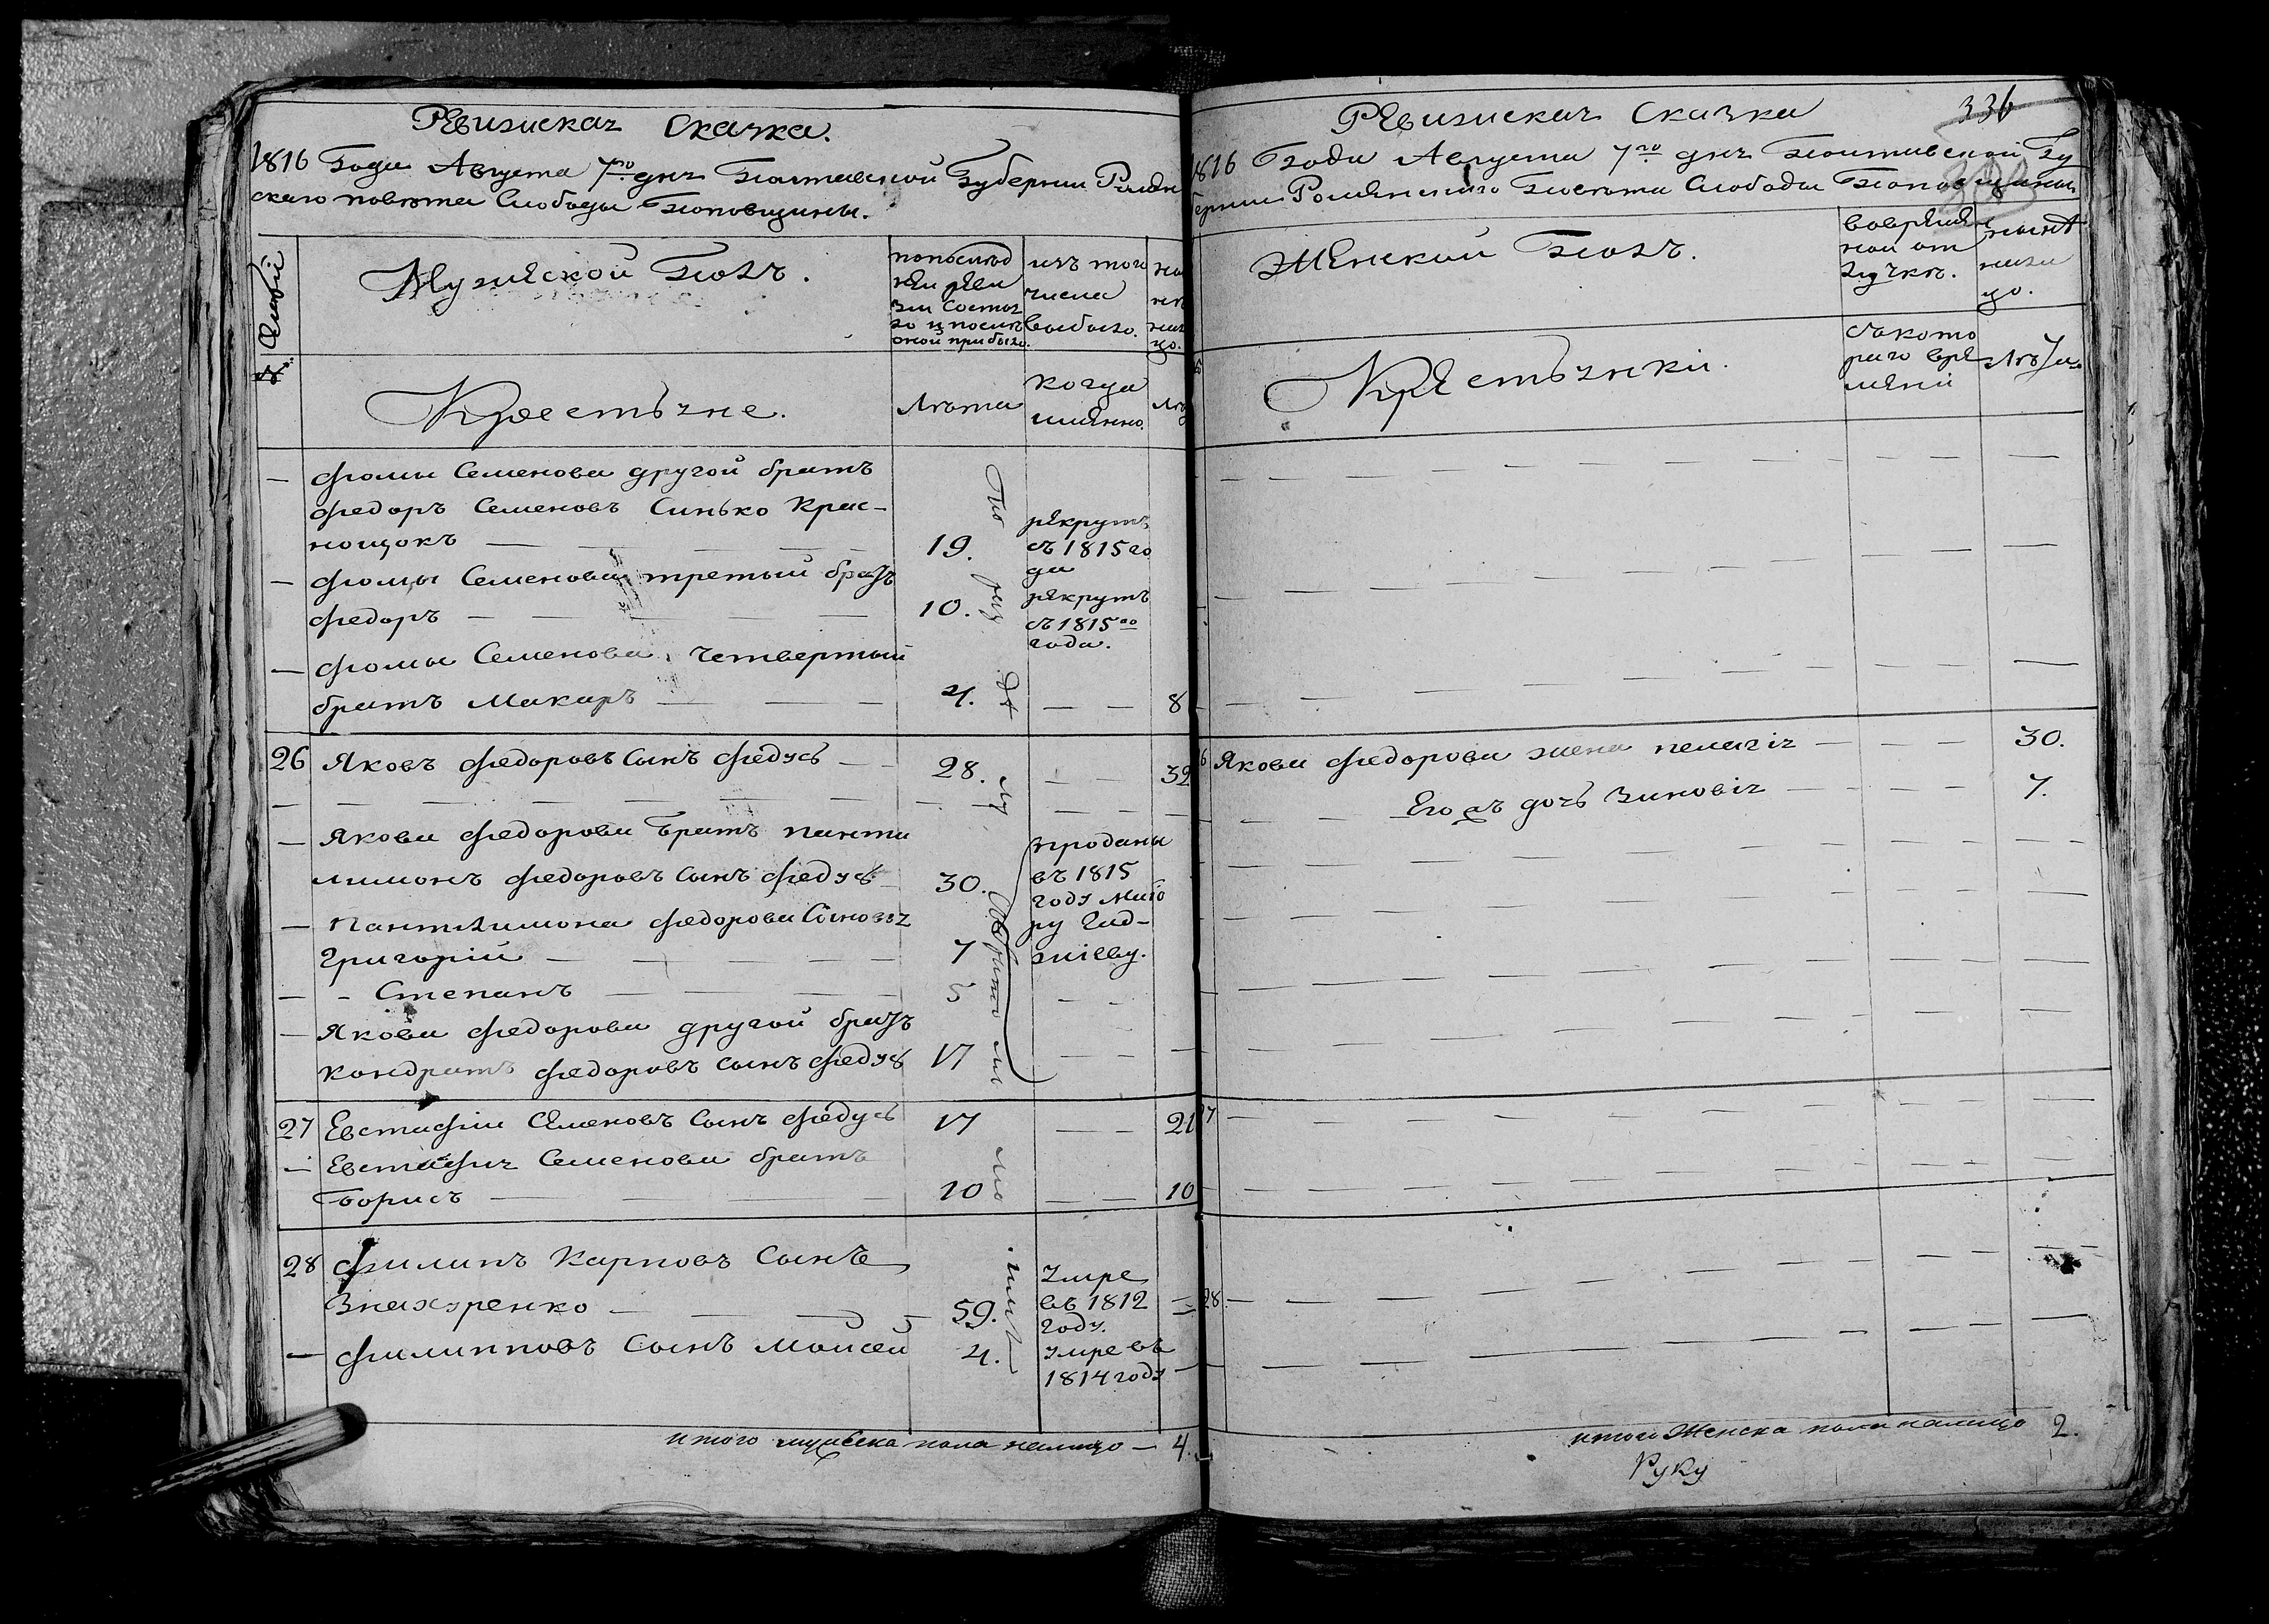 Ревизиская Сказка.
1816 Года Августа 7го дня Полтавской Губернии Ромен
скаго повета Слободы Поповщины.
№ Семьи
Мужеской Полъ.
попослед
ней реви
зии состоя
ло и после
оной прибыло.
изъ того
числа
выбыло.
Крестьяне.
Лета
когда
именно.
— Фомы Семенова другой братъ
Федоръ Семеновъ Синько Крас-
нощокъ — 19. рекрутъ
съ 1815 го
да
— Фомы Семенова третый братъ
Федоръ — 10. рекрутъ
съ 1815го
года.
— Фомы Семенова четвертый
братъ Макаръ — 4. — — 8
26 Яковъ Федоровъ Сынъ Федусь — 28. — — 32
— Якова Федорова братъ панте
лимонъ Федоровъ Сынъ Федусь 30. проданы
въ 1815
году
— Пантелимона Федорова Сыновья
Григорій — 7
— - Степанъ — 5 — —
— Якова Федорова другой братъ
Кондратъ Федоровъ Сынъ Федусь 17 — — —
27 Евстафии Семеновъ Сынъ Федусь 17 — — 21
— Евстафия Семенова братъ
Борисъ — 10 — — 10
28 Филипъ Карповъ Сынъ
Знахуренко — 59. умре
въ 1812
году.
— Филипповъ Сынъ Моисей 4. умре въ
1814 году —
итого мужеска пола налицо — 4.
Ревизиская Сказка
336
1816 Года Августа 7го дня Полтавской Гу
бернии Роменскаго Повета Слободы Поповщины
Женской Полъ.
вовремен
ной от
лучке.
ныне
нали
цо.
Крестьянкі.
съ кото
раго вре
мени
Лета.
Якова Федорова жена пелагія — — — 30.
Его жъ дочь Зиновія — — — 7.
27
28
итого Женска пола налицо 2.
Руку